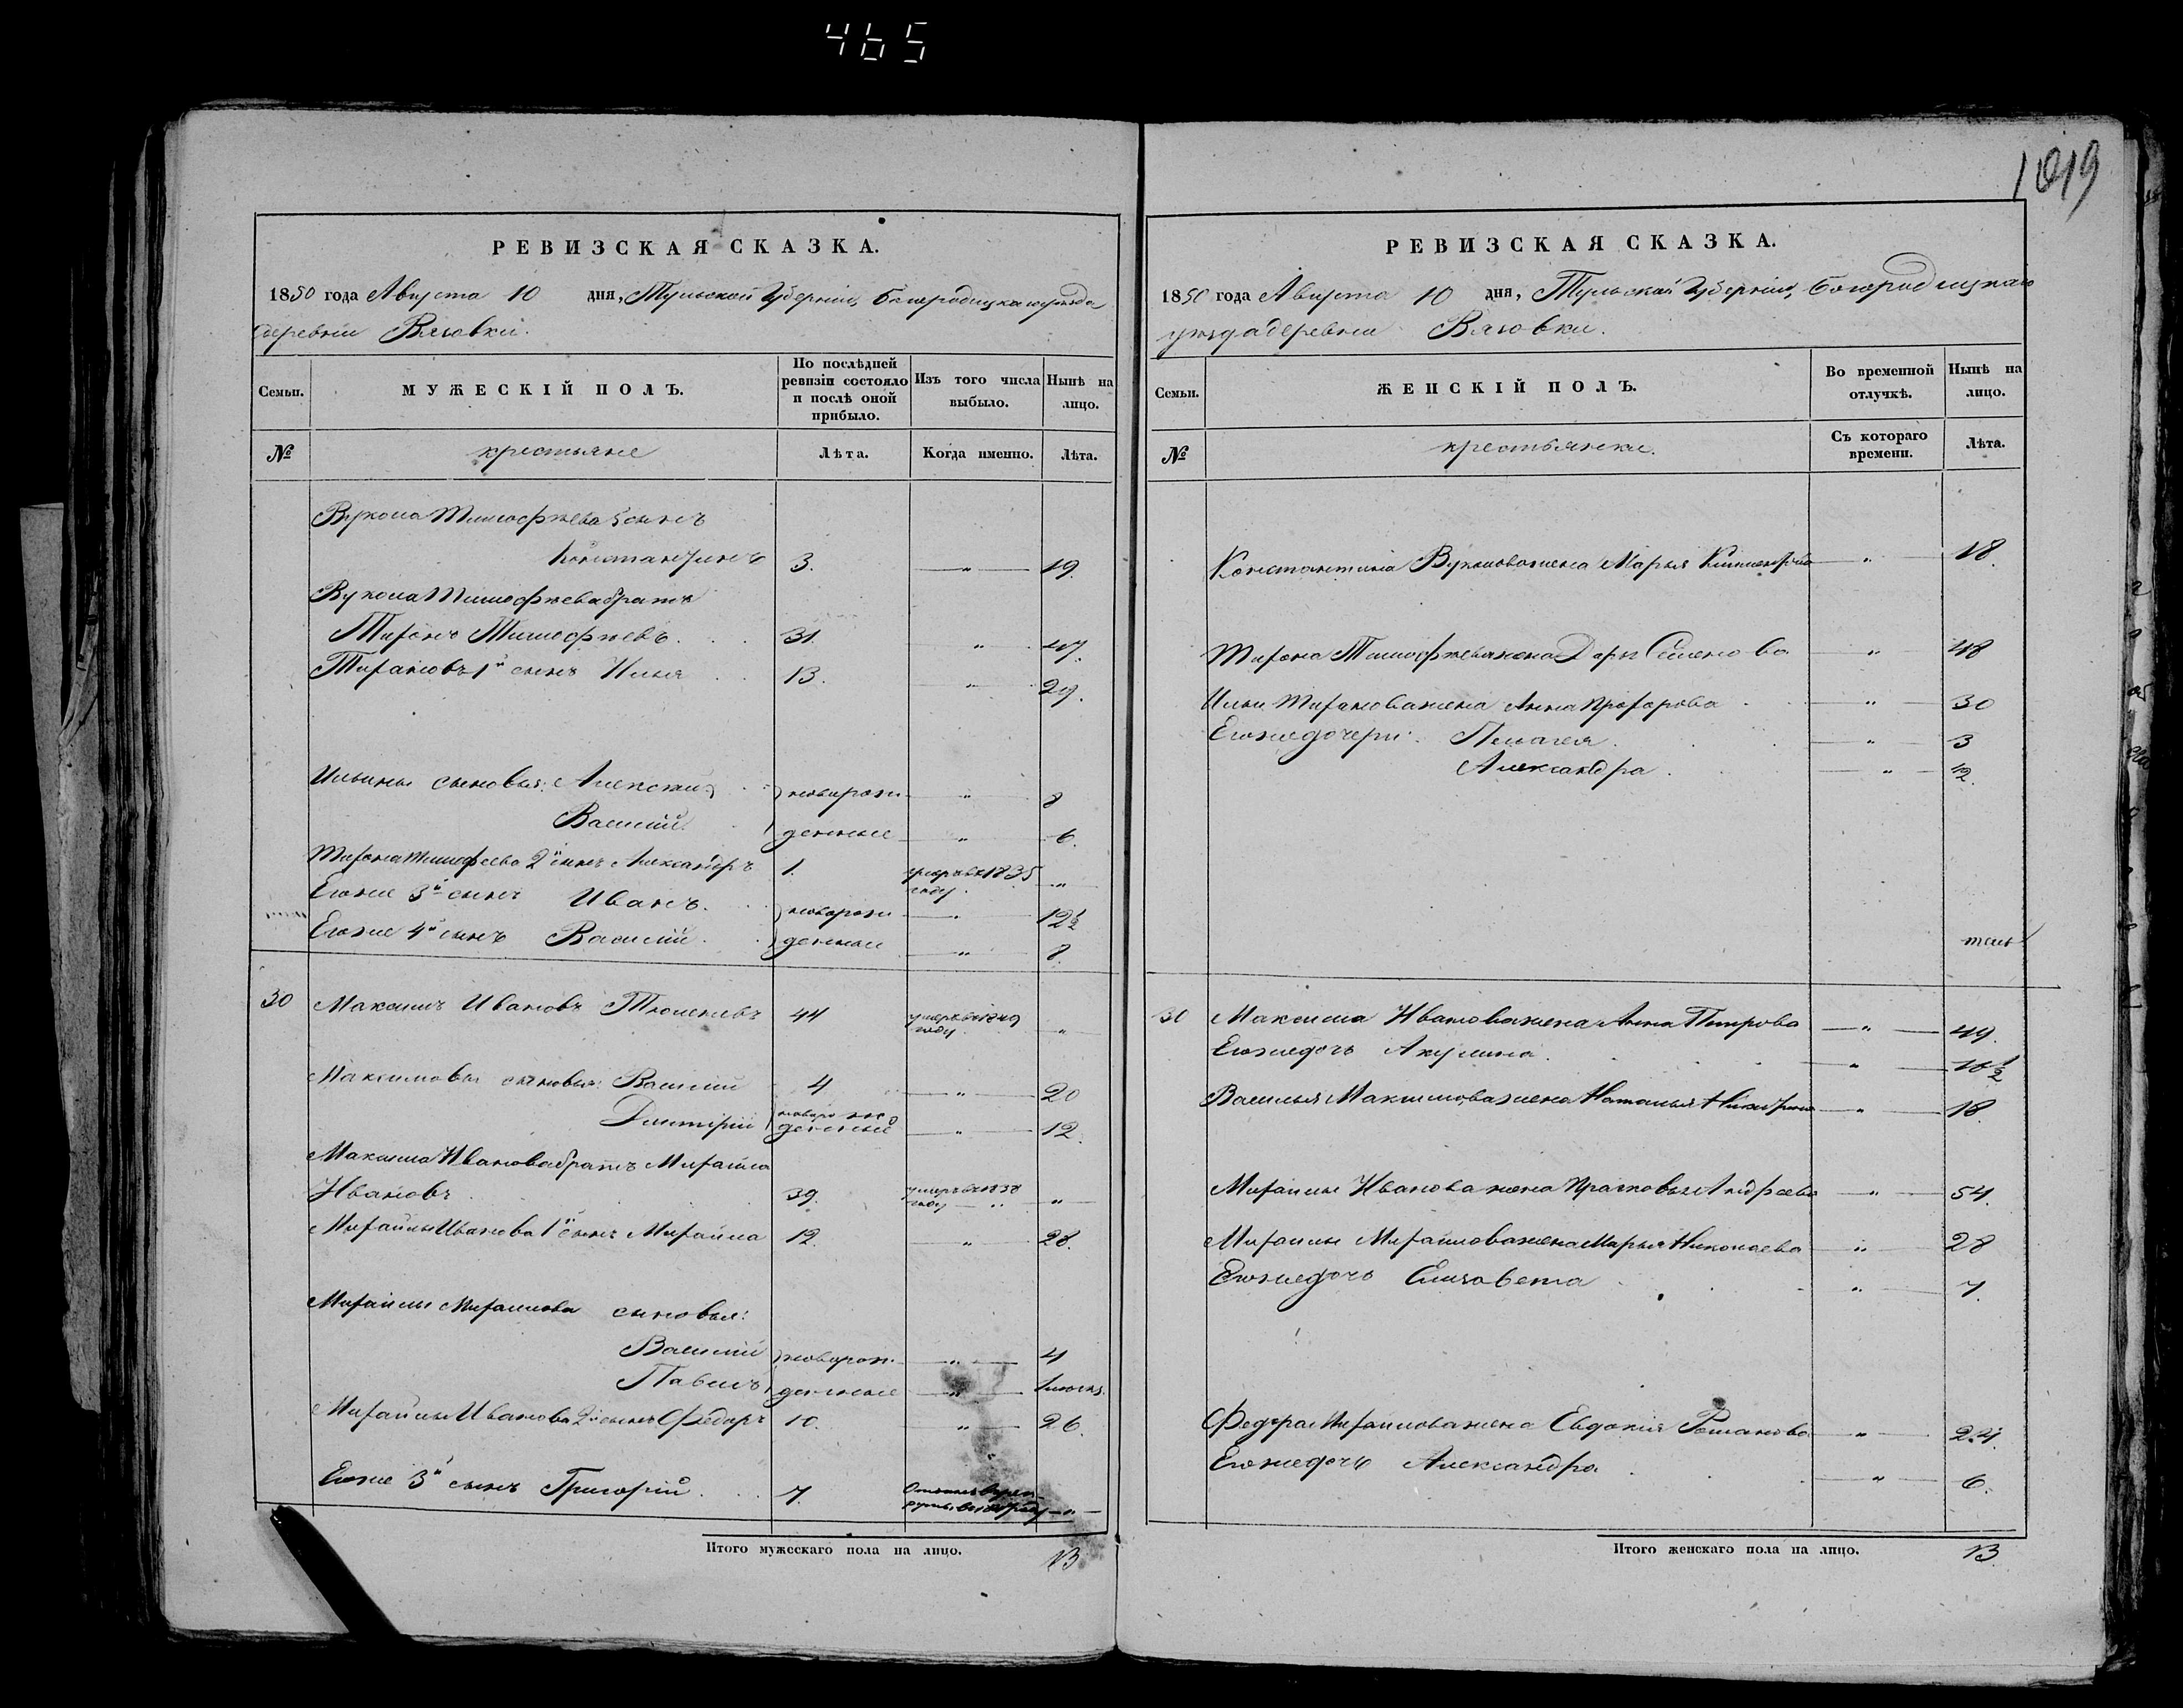 465
1019
РЕВИЗСКАЯ СКАЗКА.
1850 года Августа 10 дня, Тульской Губерніи, Богородицкаго уѣзда
деревни Вязовки.
Семьи. МУЖЕСКІЙ ПОЛЪ. По послѣдней ревизіи состояло и послѣ оной прибыло. Изъ того числа выбыло. Нынѣ на лицо.
№ крестьяне Лѣта. Когда именно. Лѣта.
Вукола Тимофѣева 5 сынъ
Константинъ 3. " 19.
Вукола Тимофѣева братъ
Тихонъ Тимофѣевъ. 31. " 47.
Тихоновъ 1й сынъ Илья 13. " 29.
Ильины сыновья: Алексѣй новорож " 8
Василий денные " 6.
Тихона Тимофеева 2й сынъ Александръ 1. умеръ въ 1835 году. "
Егоже 3й сынъ Иванъ. новорож " 12½
Егоже 4й сынъ Василий денные " 8
30 Максимъ Ивановъ 44 умеръ въ 1849 году. "
Максимовы сыновья: Василий 4 " 20
Дмитрій новорож денные " 12.
Максима Иванова братъ Михайла
Ивановъ 39. умеръ въ 1838 году "
Михайлы Иванова 1й сынъ Михайла 12. " 28.
Михайлы Михайлова сыновья:
Василий новорож. " 4
Павелъ денные "
Михайлы Иванова 2й сынъ Федоръ 10. " 26.
Егоже 3й сынъ Григорій 7. "
Итого мужескаго пола на лицо. 13
РЕВИЗСКАЯ СКАЗКА.
1850 года Августа 10 дня, Тульской Губерніи, Богородицкаго
уѣзда деревни Вязовки.
Семьи. ЖЕНСКІЙ ПОЛЪ. Во временной отлучкѣ. Нынѣ на лицо.
№ крестьянки. Съ котораго времени. Лѣта.
Константина Вуколова жена Марья " 18.
Тихона Тимофѣева жена Дарья Семенова " 48
Ильи Тихонова жена Анна Прохорова " 30
Егоже дочери: Пелагея " 3
Александра. " ½.
30 Максима Иванова жена Анна Петрова " 49.
Егоже дочь Акулина. " 10½
Василья Максимова жена Наталья " 18.
Михайлы Иванова жена Прасковья Андреева " 54.
Михайлы Михайлова жена Марья Николаева " 28
Егоже дочь Елизавета " 7.
Федора Михайлова жена Евдокия Романова " 24.
Егоже дочь Александра " 6.
Итого женскаго пола на лицо. 13